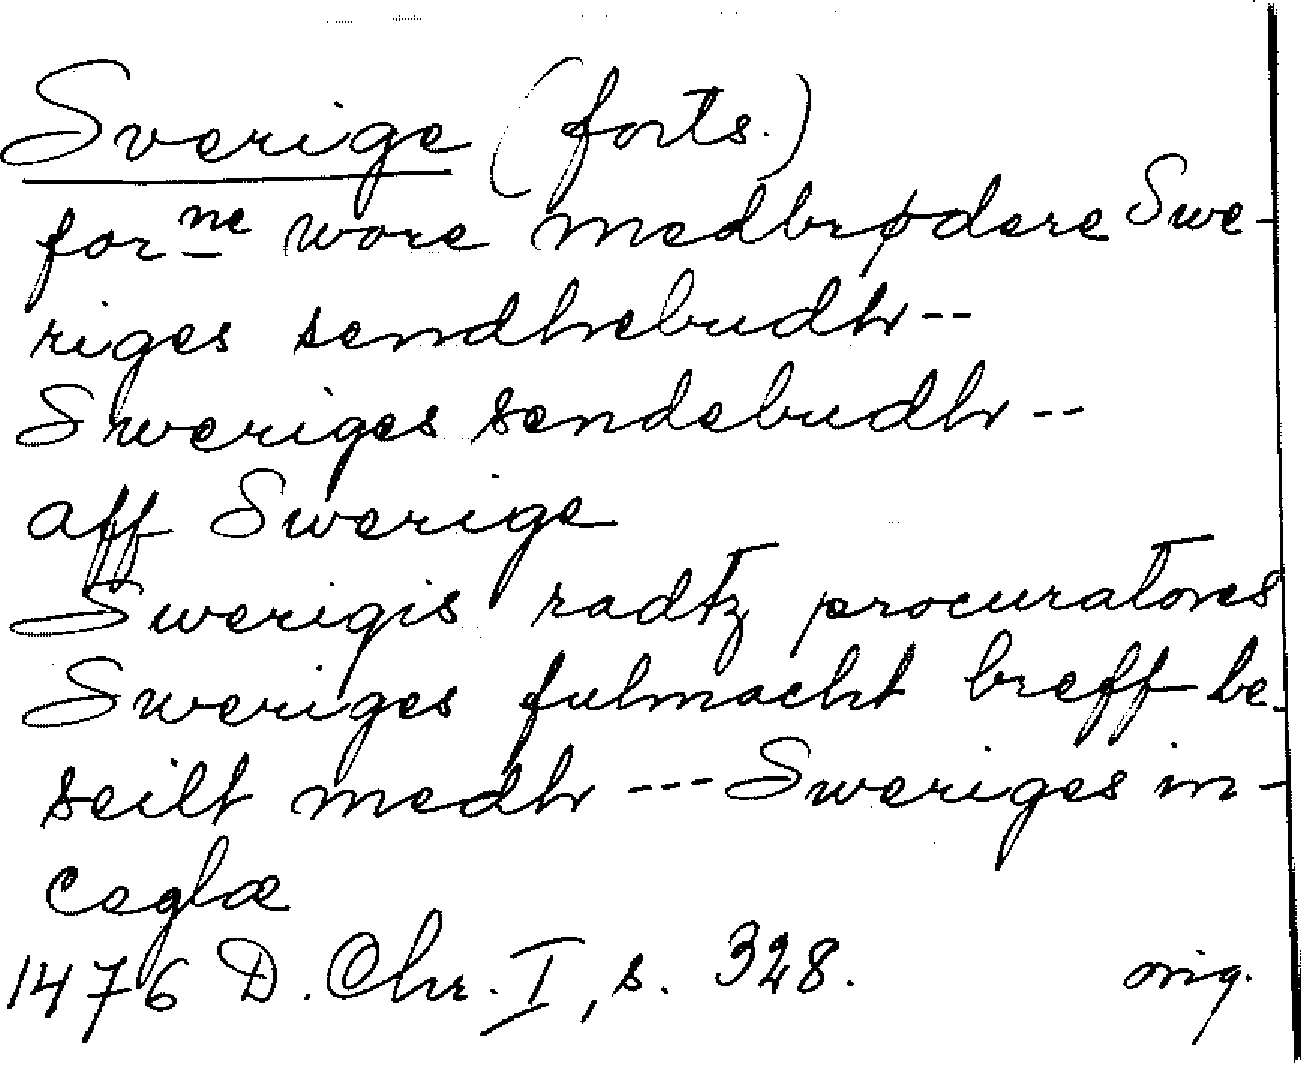 Sverige (forts.)
forne wore medbrødere Swe-
riges sendhebudh --
Sweriges sendebudh --
aff Swerige
Swerigis radtz procuratores
Sweriges fulmacht breff be-
seilt medh --- Sweriges in-
ceglæ
1476 D. Chr. I, s. 328. orig.